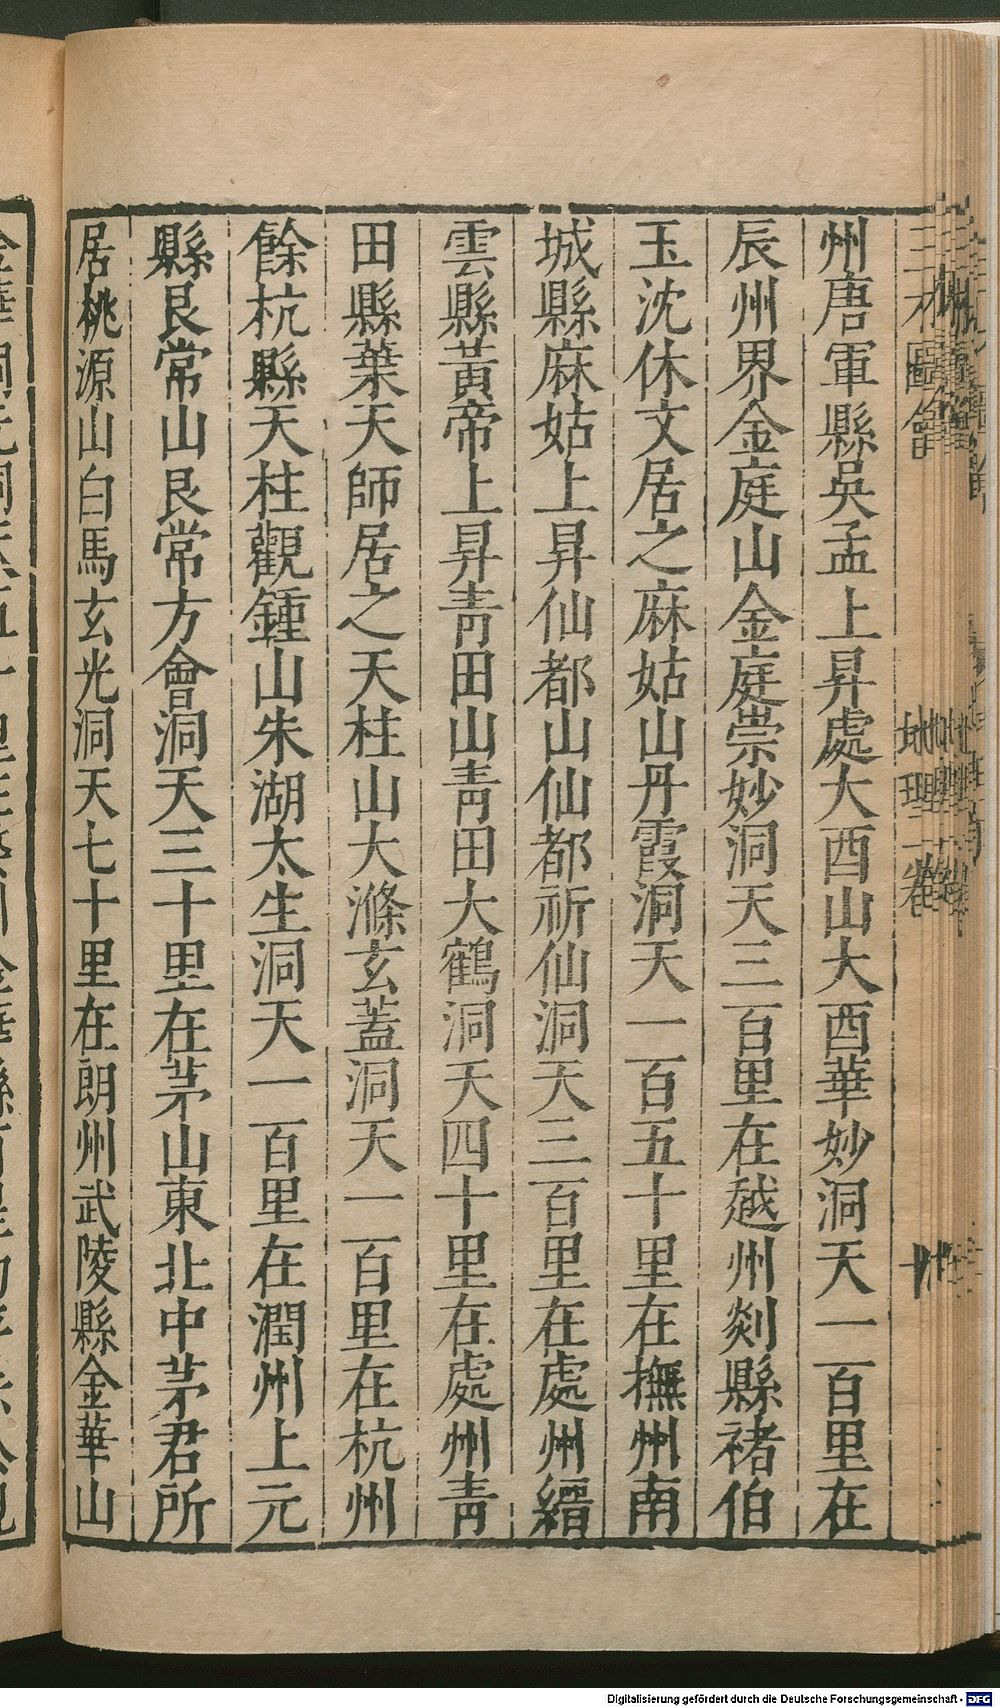 州唐軍縣吳孟上昇處大酉山大酉華妙洞天一百里在
辰州界金庭山金庭崇妙洞天三百里在越州剡縣褚伯
玉沈休文居之麻姑山丹霞洞天一百五十里在撫州南
城縣麻姑上昇仙都山仙都祈仙洞天三百里在處州縉
雲縣黃帝上昇青田山青田大鶴洞天四十里在處州青
田縣葉天師居之天柱山大滌玄蓋洞天一百里在杭州
餘杭縣天柱觀鍾山朱湖太生洞天一百里在潤州上元
縣良常山良常方會洞天三十里在茅山東北中茅君所
居桃源山白馬玄光洞天七十里在朗州武陵縣金華山
三才圖會
地理二卷
Digitalisierung gefördert durch die Deutsche Forschungsgemeinschaft - DFG